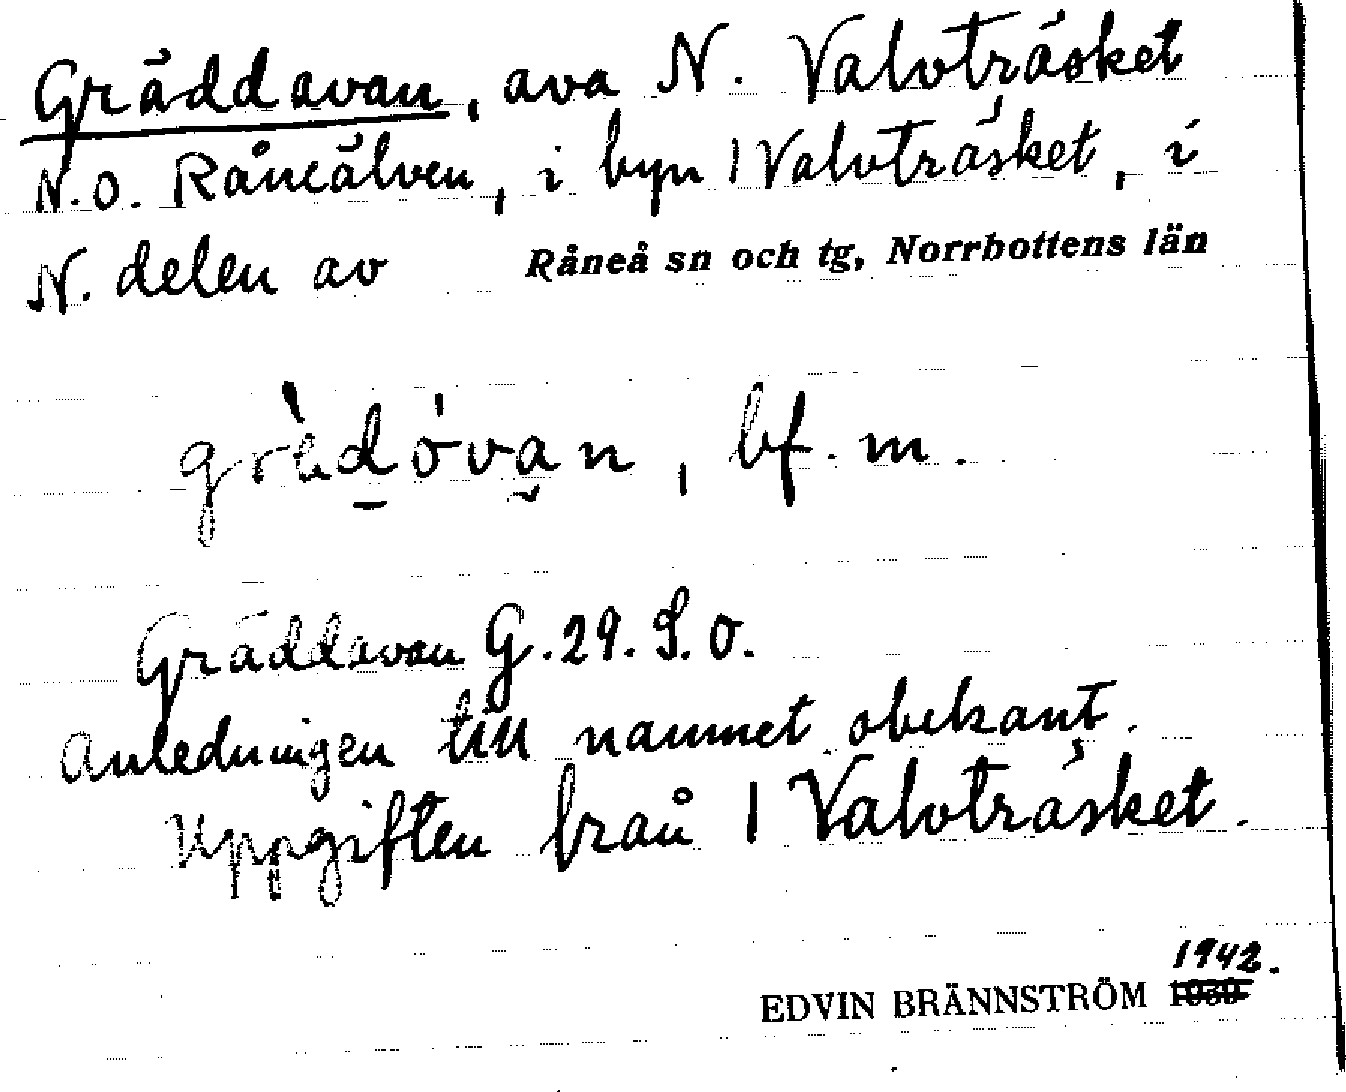 Gräddavan, ava N. Valvträsket
N.O. Råneälven, i byn 1 Valvträsket, i
N. delen av Råneå sn och tg, Norrbottens län
bf. m.
Gräddavan G.29.S.O.
Anledningen till namnet obekant.
Uppgiften från 1 Valvträsket.
1942.
EDVIN BRÄNNSTRÖM 1939